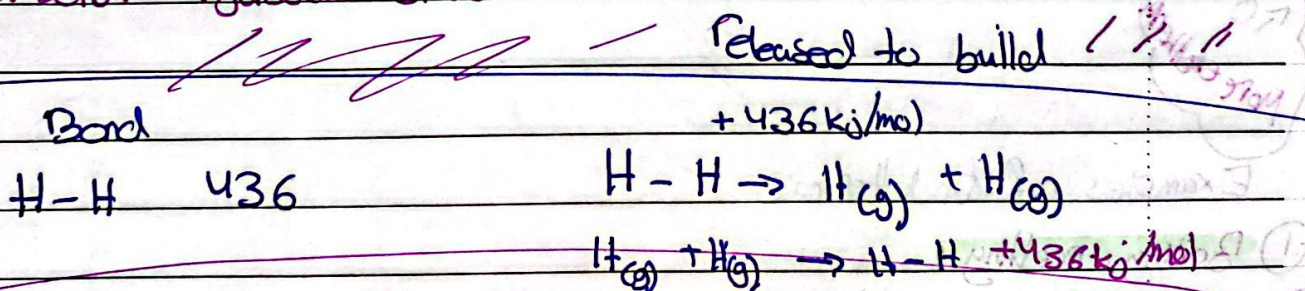 released to build
Bond
+436 kj/mol
H-H 436
H-H → H(g) + H(g)
H(g) + H(g) → H-H +436 kj/mol